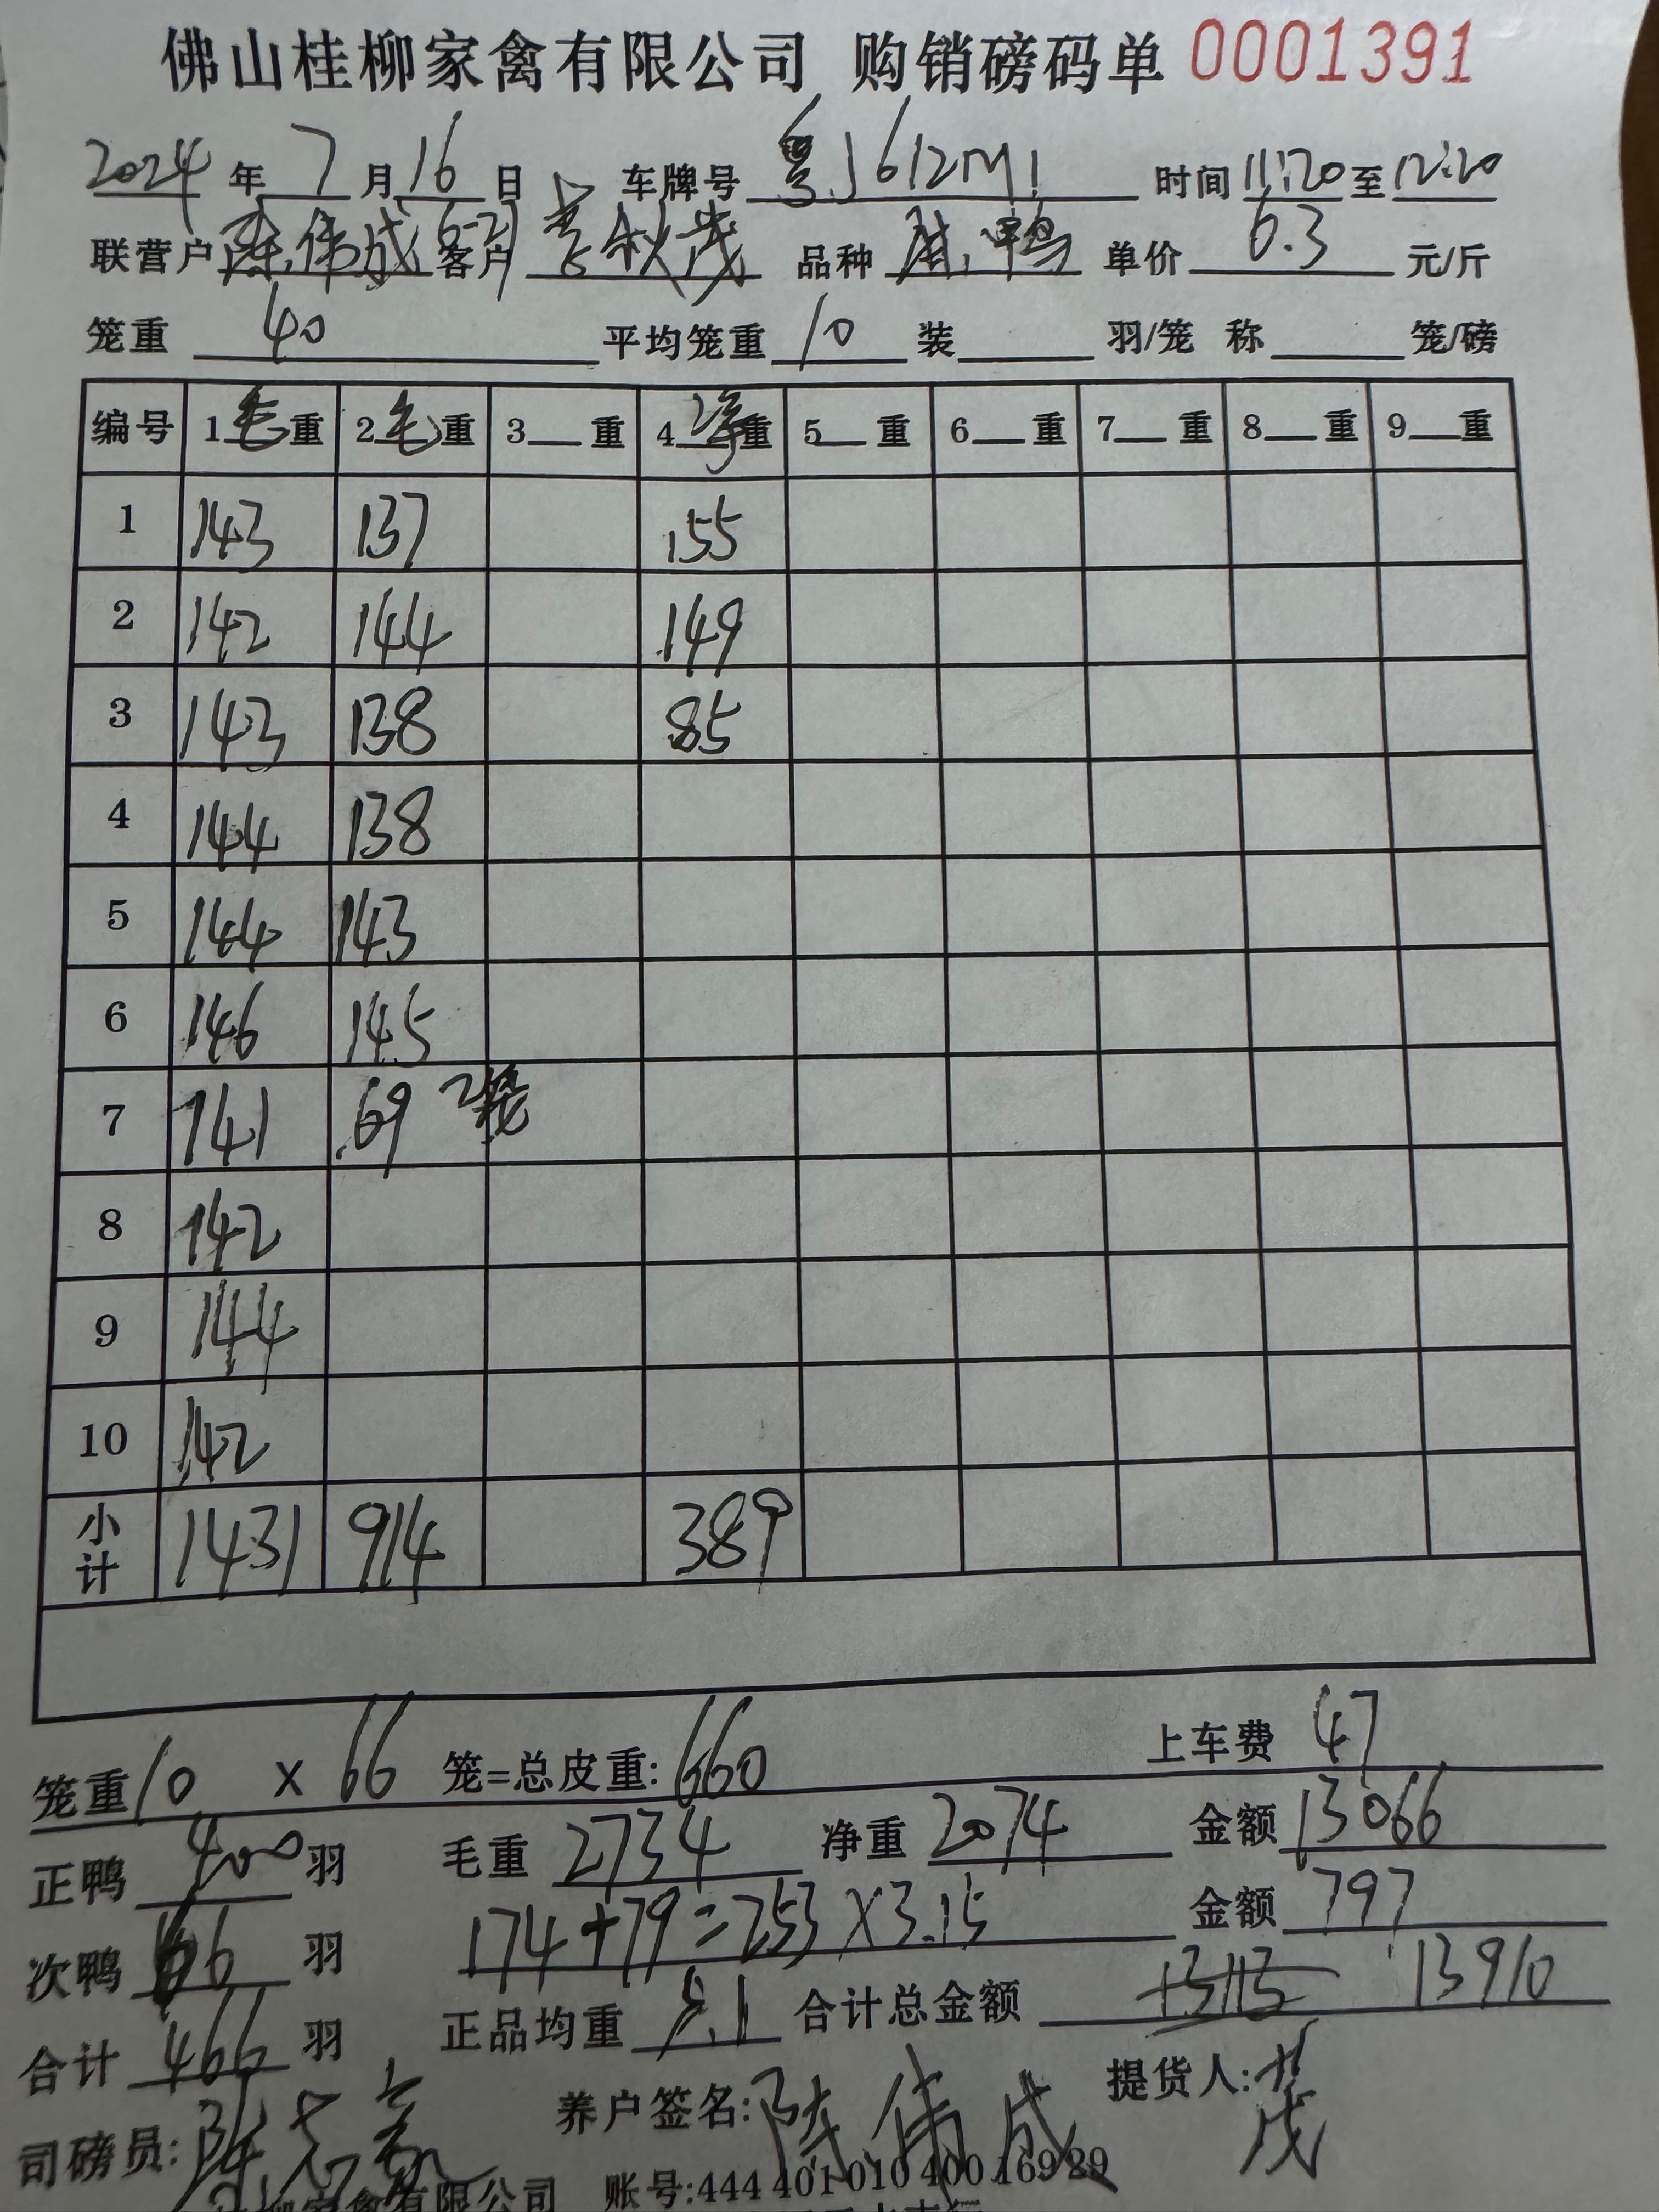 佛山桂柳家禽有限公司 购销磅码单 0001391
2024 年 7 月 16 日 车牌号 粤J612M1 时间 11:20 至 12:20
联营户 陈伟成 6-21 客户 秋茂 品种 鸭 单价 6.3 元/斤
笼重 40 平均笼重 10 装 羽/笼 称 笼/磅
编号 1毛重 2毛重 3 重 4净重 5 重 6 重 7 重 8 重 9 重
1 143 137 155
2 142 144 149
3 143 138 85
4 144 138
5 144 143
6 146 145
7 141 69 2笼
8 142
9 144
10 142
小计 1431 914 389
笼重 10 X 66 笼=总皮重: 660 上车费 47
正鸭 400 羽 毛重 2734 净重 2074 金额 13066
次鸭 66 羽 174+79=253×3.15 金额 797
合计 466 羽 正品均重 5.1 合计总金额 13113 13910
司磅员: 陈 养户签名: 陈伟成 提货人: 茂
家禽有限公司 账号:444 401 010 400 169 29